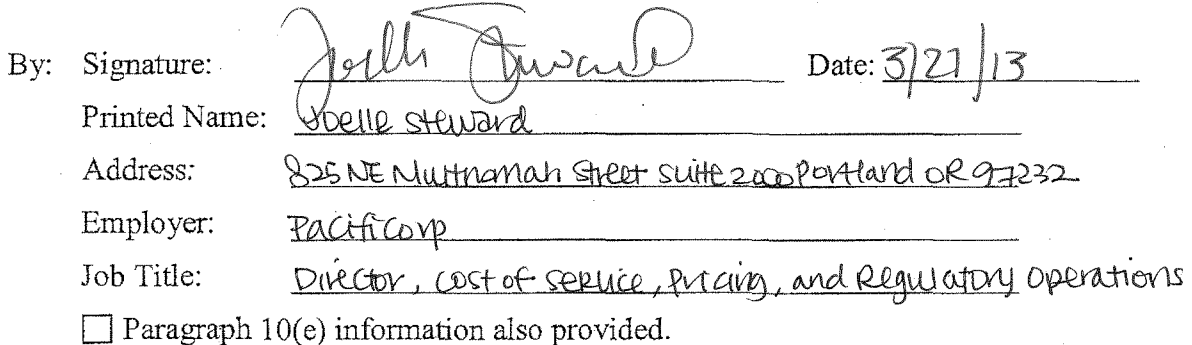 By: Signature: Joelle Steward Date: 3/27/13
Printed Name: Joelle Steward
Address: 825 NE Multnomah Street suite 2000 Portland OR 97232
Employer: Pacificorp
Job Title: Director, cost of service, Pricing, and Regulatory operations
☐ Paragraph 10(e) information also provided.